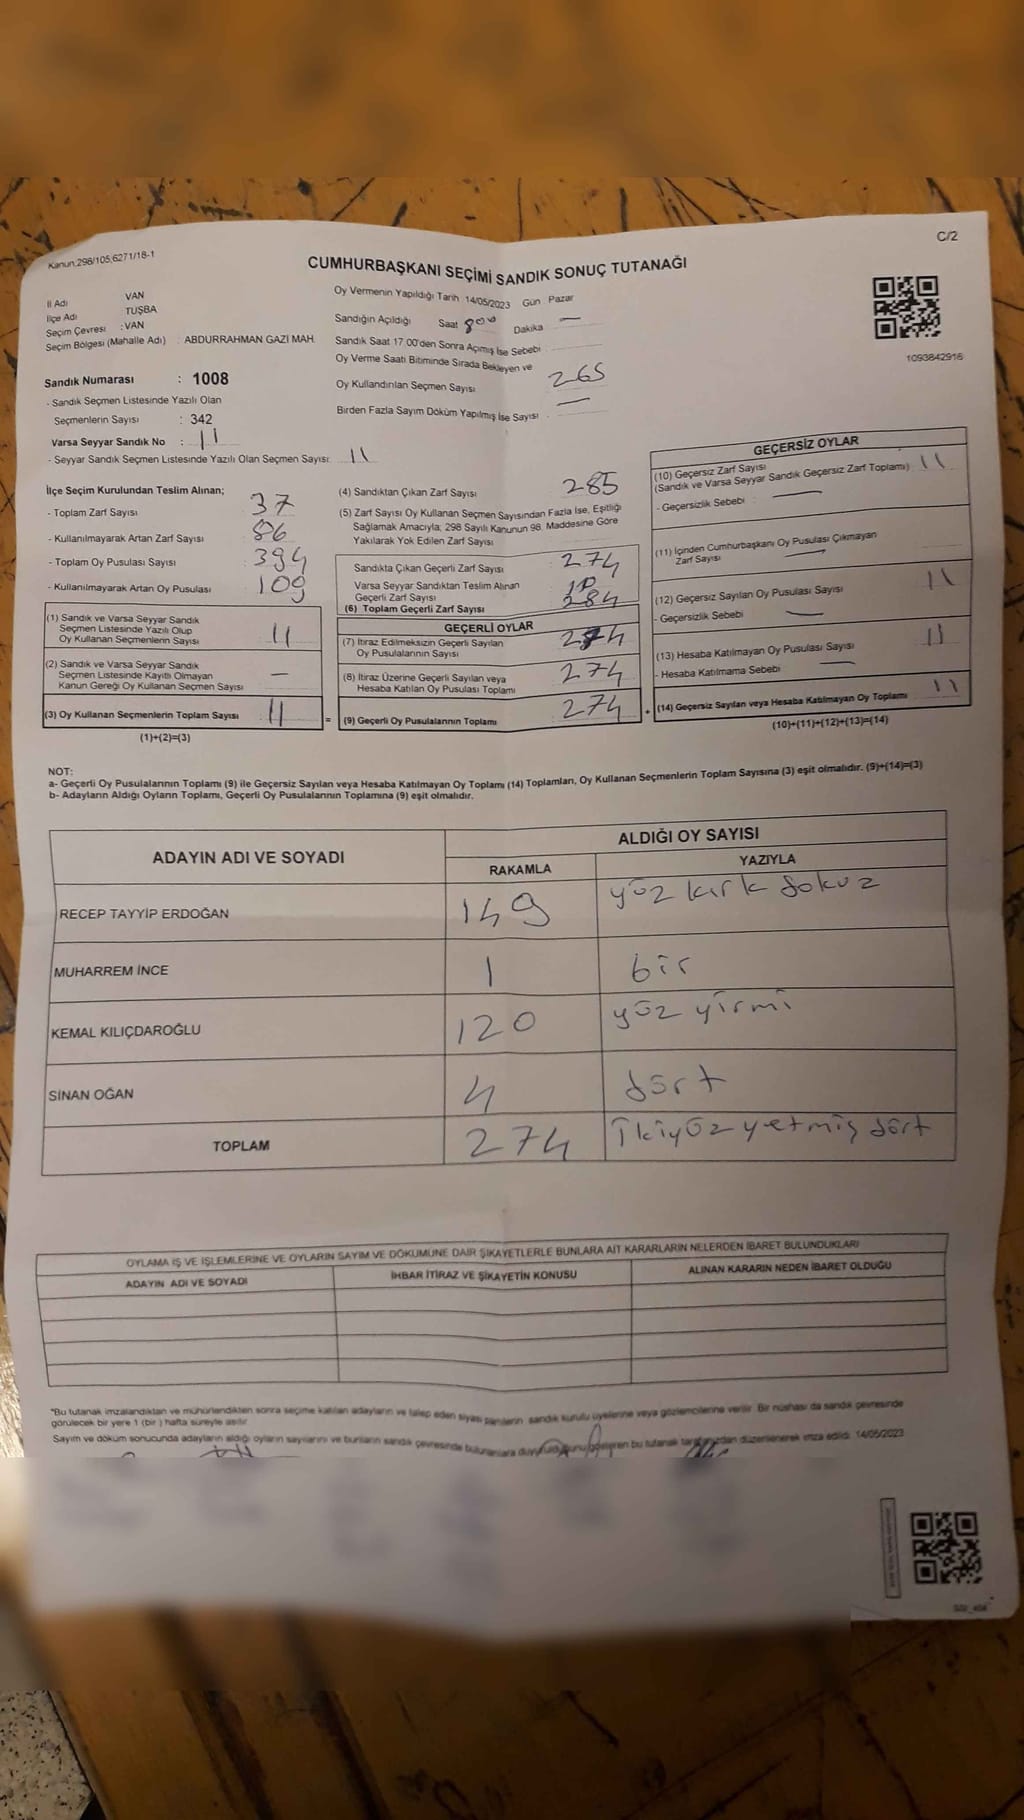 Kanun:298/105,6271/18-1
C/2
CUMHURBAŞKANI SEÇİMİ SANDIK SONUÇ TUTANAĞI
İl Adı VAN
İlçe Adı TUŞBA
Seçim Çevresi : VAN
Seçim Bölgesi (Mahalle Adı) : ABDURRAHMAN GAZİ MAH.
Sandık Numarası : 1008
- Sandık Seçmen Listesinde Yazılı Olan
Seçmenlerin Sayısı : 342
Varsa Seyyar Sandık No : 11
- Seyyar Sandık Seçmen Listesinde Yazılı Olan Seçmen Sayısı: 11
Oy Vermenin Yapıldığı Tarih 14/05/2023 Gün Pazar
Sandığın Açıldığı Saat 8 00 Dakika —
Sandık Saat 17.00'den Sonra Açımış İse Sebebi
Oy Verme Saati Bitiminde Sırada Bekleyen ve
Oy Kullandırılan Seçmen Sayısı 265
Birden Fazla Sayım Döküm Yapılmış İse Sayısı —
1093842916
İlçe Seçim Kurulundan Teslim Alınan;
- Toplam Zarf Sayısı 37
- Kullanılmayarak Artan Zarf Sayısı 86
- Toplam Oy Pusulası Sayısı 394
- Kullanılmayarak Artan Oy Pusulası 109
(1) Sandık ve Varsa Seyyar Sandık
Seçmen Listesinde Yazılı Olup
Oy Kullanan Seçmenlerin Sayısı 11
(2) Sandık ve Varsa Seyyar Sandık
Seçmen Listesinde Kayıtlı Olmayan
Kanun Gereği Oy Kullanan Seçmen Sayısı —
(3) Oy Kullanan Seçmenlerin Toplam Sayısı 11 =
(1)+(2)=(3)
(4) Sandıktan Çıkan Zarf Sayısı 285
(5) Zarf Sayısı Oy Kullanan Seçmen Sayısından Fazla İse, Eşitliği
Sağlamak Amacıyla; 298 Sayılı Kanunun 98. Maddesine Göre
Yakılarak Yok Edilen Zarf Sayısı
Sandıkta Çıkan Geçerli Zarf Sayısı 274
Varsa Seyyar Sandıktan Teslim Alınan
Geçerli Zarf Sayısı 10
(6) Toplam Geçerli Zarf Sayısı 284
GEÇERLİ OYLAR
(7) İtiraz Edilmeksizin Geçerli Sayılan
Oy Pusulalarının Sayısı 274
(8) İtiraz Üzerine Geçerli Sayılan veya
Hesaba Katılan Oy Pusulası Toplamı 274
(9) Geçerli Oy Pusulalarının Toplamı 274 +
GEÇERSİZ OYLAR
(10) Geçersiz Zarf Sayısı
(Sandık ve Varsa Seyyar Sandık Geçersiz Zarf Toplamı) 11
- Geçersizlik Sebebi : —
(11) İçinden Cumhurbaşkanı Oy Pusulası Çıkmayan
Zarf Sayısı —
(12) Geçersiz Sayılan Oy Pusulası Sayısı 11
- Geçersizlik Sebebi : —
(13) Hesaba Katılmayan Oy Pusulası Sayısı 11
- Hesaba Katılmama Sebebi : —
(14) Geçersiz Sayılan veya Hesaba Katılmayan Oy Toplamı 11
(10)+(11)+(12)+(13)=(14)
NOT:
a- Geçerli Oy Pusulalarının Toplamı (9) ile Geçersiz Sayılan veya Hesaba Katılmayan Oy Toplamı (14) Toplamları, Oy Kullanan Seçmenlerin Toplam Sayısına (3) eşit olmalıdır. (9)+(14)=(3)
b- Adayların Aldığı Oyların Toplamı, Geçerli Oy Pusulalarının Toplamına (9) eşit olmalıdır.
ADAYIN ADI VE SOYADI ALDIĞI OY SAYISI
RAKAMLA YAZIYLA
RECEP TAYYİP ERDOĞAN 149 yüz kırk dokuz
MUHARREM İNCE 1 bir
KEMAL KILIÇDAROĞLU 120 yüz yirmi
SİNAN OĞAN 4 dört
TOPLAM 274 ikiyüz yetmiş dört
OYLAMA İŞ VE İŞLEMLERİNE VE OYLARIN SAYIM VE DÖKÜMÜNE DAİR ŞİKAYETLERLE BUNLARA AİT KARARLARIN NELERDEN İBARET BULUNDUKLARI
ADAYIN ADI VE SOYADI İHBAR İTİRAZ VE ŞİKAYETİN KONUSU ALINAN KARARIN NEDEN İBARET OLDUĞU
"Bu tutanak imzalandıktan ve mühürlendikten sonra seçime katılan adayların ve talep eden siyasi partilerin sandık kurulu üyelerine veya gözlemcilerine verilir. Bir nüshası da sandık çevresinde
görülecek bir yere 1 (bir) hafta süreyle asılır.
Sayım ve döküm sonucunda adayların aldığı oyların sayılarını ve bunların sandık çevresinde bulunanlara duyurulduğunu gösteren bu tutanak tarafımızdan düzenlenerek imza edildi. 14/05/2023